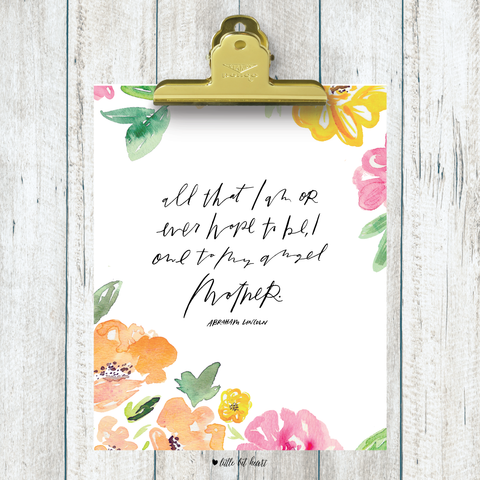 all that I am OR
ever hope to be, I
owe to my angel
Mother.
ABRAHAM LINCOLN
little bit heart